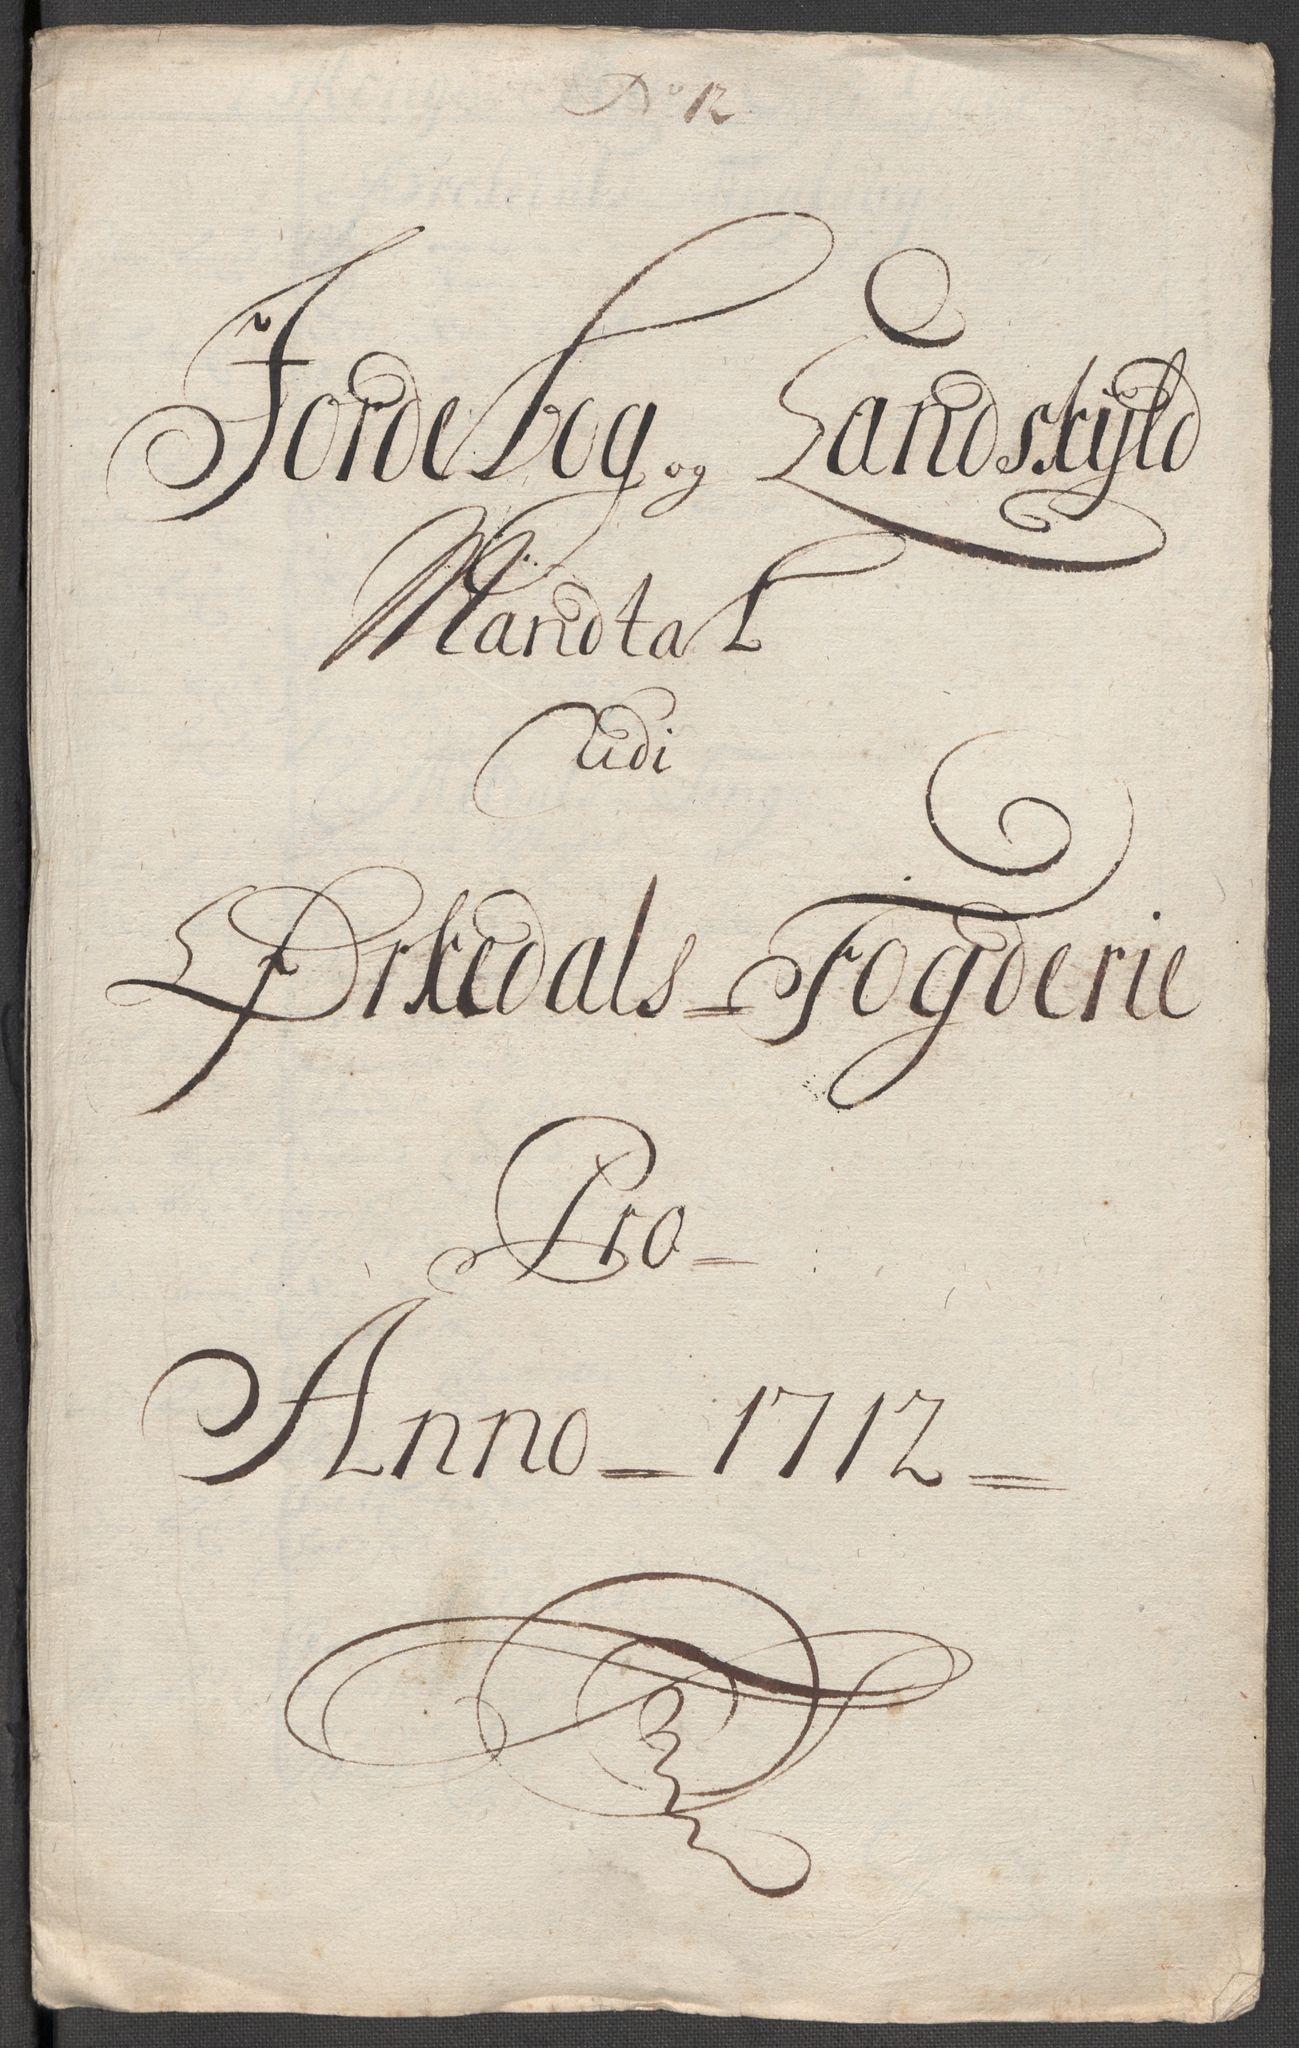 No 12
Jordebog og Landskyld
Mandtal
Udi
Ørkedals Fogderie
Pro
Anno 1712